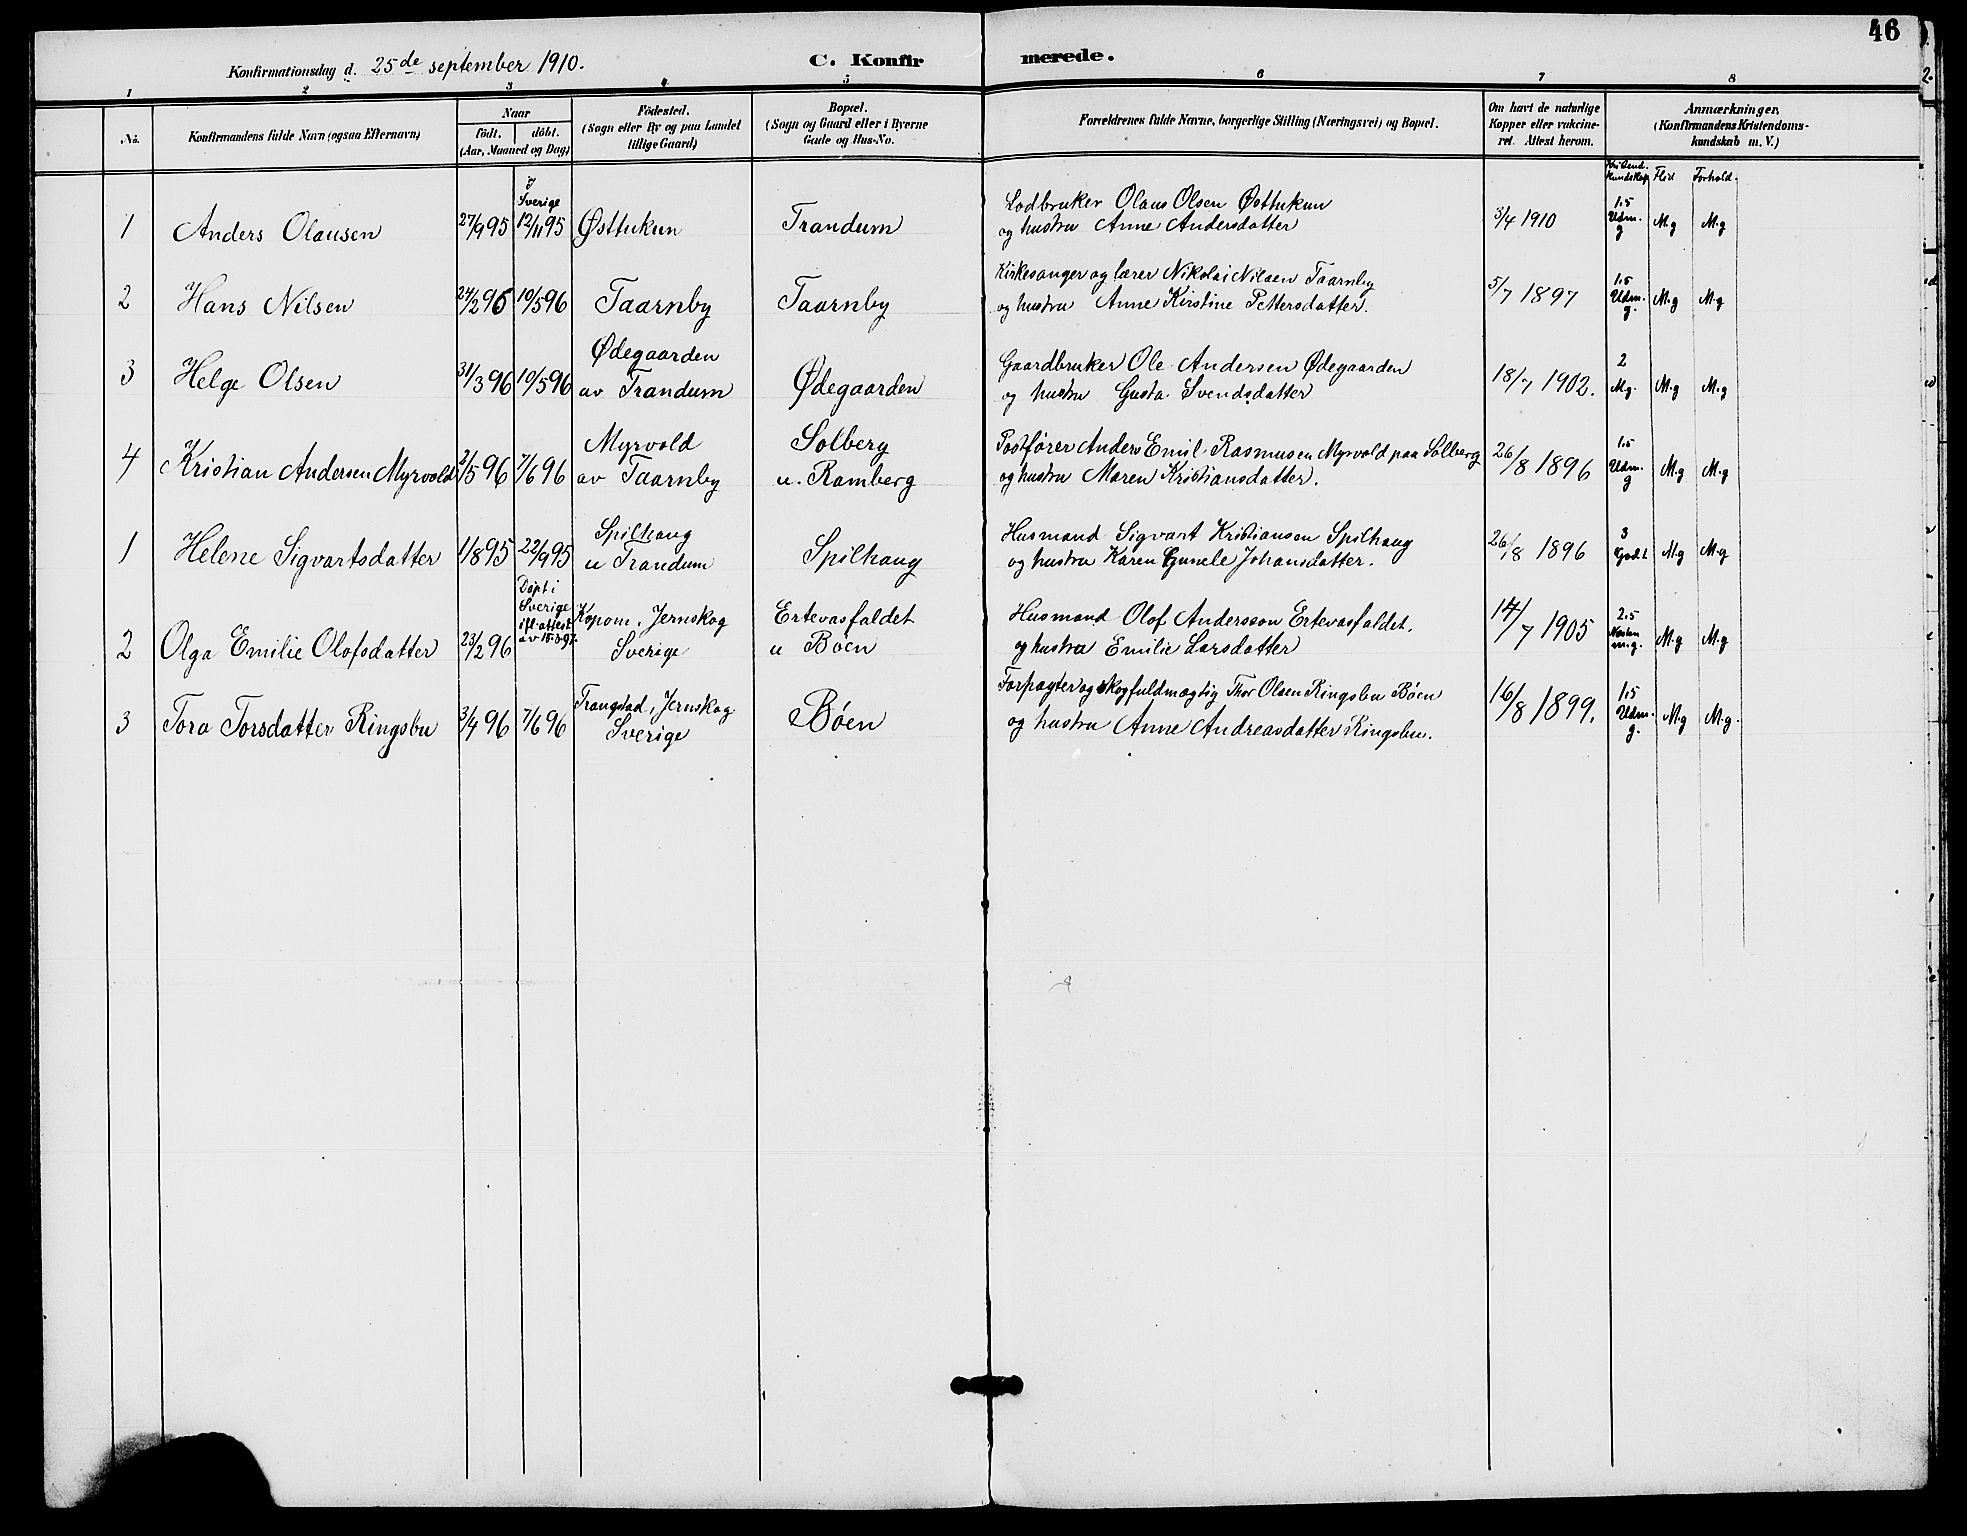 46
Konfirmationsdag d. 25de september 1910. C. Konfirmerede.
1 2 3 4 5 6 7 8
No. Konfirmandens fulde Navn (ogsaa Efternavn) Naar født. døbt. (Aar, Maaned og Dag) Fødested. (Sogn eller By og paa Landet tillige Gaard) Bopæl. (Sogn og Gaard eller i Byerne Gade og Hus-No. Forældrenes fulde Navne, borgerlige Stilling (Næringsvei) og Bopæl. Om havt de naturlige Kopper eller vakcineret. Attest herom. Anmærkninger, (Konfirmandens Kristendomskundskab m. V.)
Kristend. kundskap Flid Forhold.
I Sverige
1 Anders Olausen 27/9 95 12/11 95 Østtukun Trandum Lodbruker Olaus Olsen Østtukun 3/4 1910 1.5 Udm. g M.g M.g
og hustru Anne Andersdatter
2 Hans Nilsen 24/2 96 10/5 96 Taarnby Taarnby Kirkesanger og lærer Nikolai Nilsen Taarnby 5/7 1897 1.5 Udm. g. M.g M.g
og hustru Anne Kirstine Pettersdatter.
3 Helge Olsen 31/3 96 10/5 96 Ødegaarden av Trandum Ødegaarden Gaardbruker Ole Andersen Ødegaarden 18/7 1902. 2 M.g. M.g M.g
og hustru Gusta Svendsdatter
4 Kristian Andersen Myrvold 2/5 96 7/6 96 Myrvold av Taarnby Solberg u. Ramberg Postfører Anders Emil Rasmusen Myrvold paa Solberg 26/8 1896 1.5 Udm. g M.g M.g
og hustru Maren Kristiansdatter.
1 Helene Sigvartsdatter 1/8 95 22/9 95 Spilhaug u Trandum Spilhaug Husmand Sigvart Kristiansen Spilhaug 26/8 1896 3 Godt M.g M.g
og hustru Karen Gunele Johansdatter.
2 Olga Emilie Olofsdatter 23/2 96 Døpt i Sverige ifl. attest av 15-3-97. Kopom, Jernskog Sverige Ertevasfaldet u Bøen Husmand Olof Andersson Ertevasfaldet. 14/7 1905 2.5 Næsten m.g. M.g M.g
og hustru Emilie Larsdatter
3 Tora Torsdatter Ringsbu 3/4 96 7/6 96 Trangstad, Jernskog Sverige Bøen Forpagter og skogfuldmægtig Thor Olsen Ringsbu Bøen 16/8 1899. 1.5 Udm. g. M.g M.g.
og hustru Anne Andreasdatter Ringsbu.